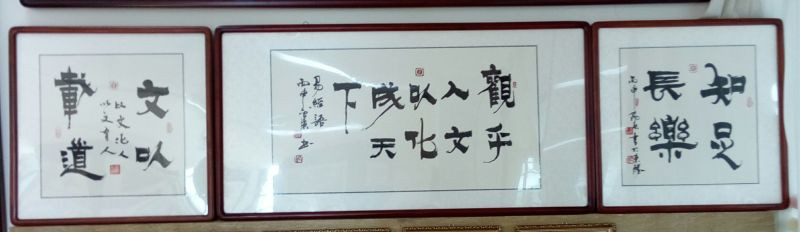 知足
長樂
丙申
觀乎
人文
以化
成天
下
易經語
文以
載道
以文化人
以文育人